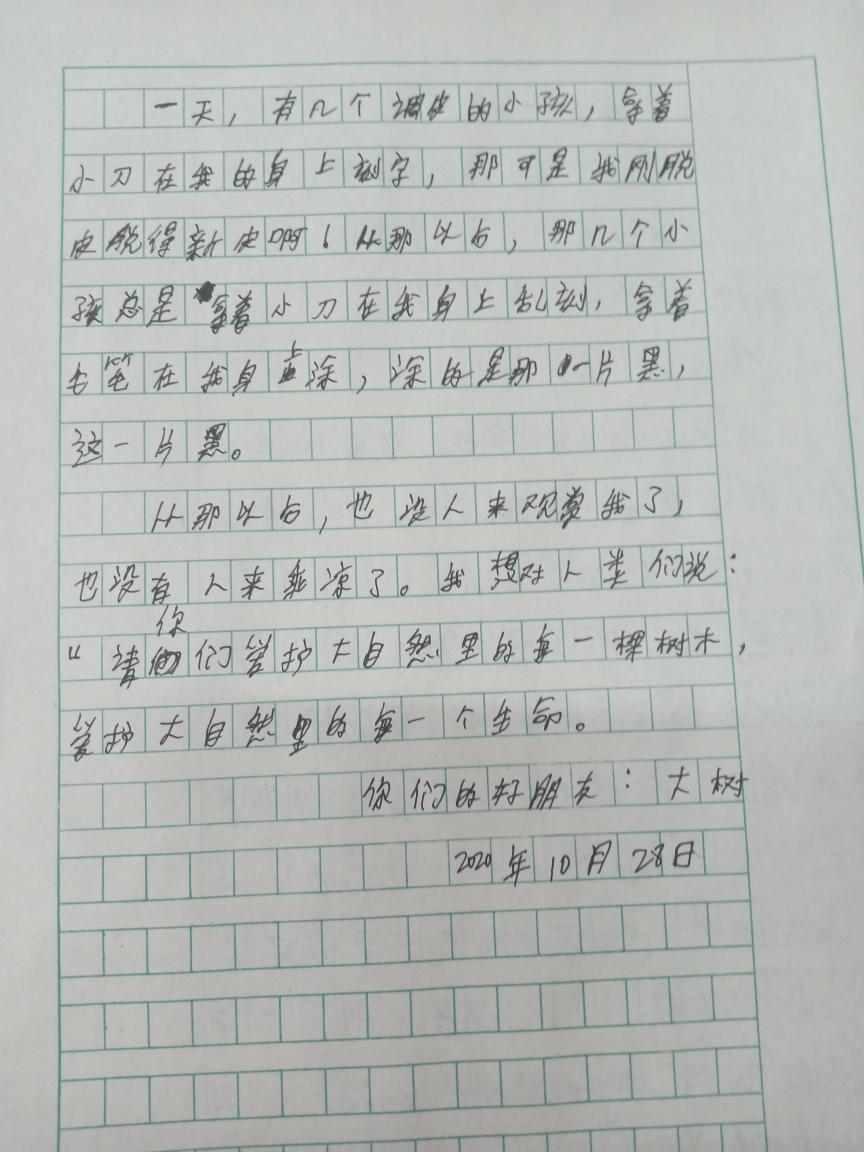 一天，有几个调皮的小孩，拿着
小刀在我的身上刻字，那可是我刚脱
皮脱得新皮啊！从那以后，那几个小
孩总是拿着小刀在我身上乱刻，拿着
毛笔在我身上涂，涂的是那一片黑，
这一片黑。
从那以后，也没人来观赏我了，
也没有人来乘凉了。我想对人类们说：
“请你们爱护大自然里的每一棵树木，
爱护大自然里的每一个生命。
你们的好朋友：大树
2020年10月28日